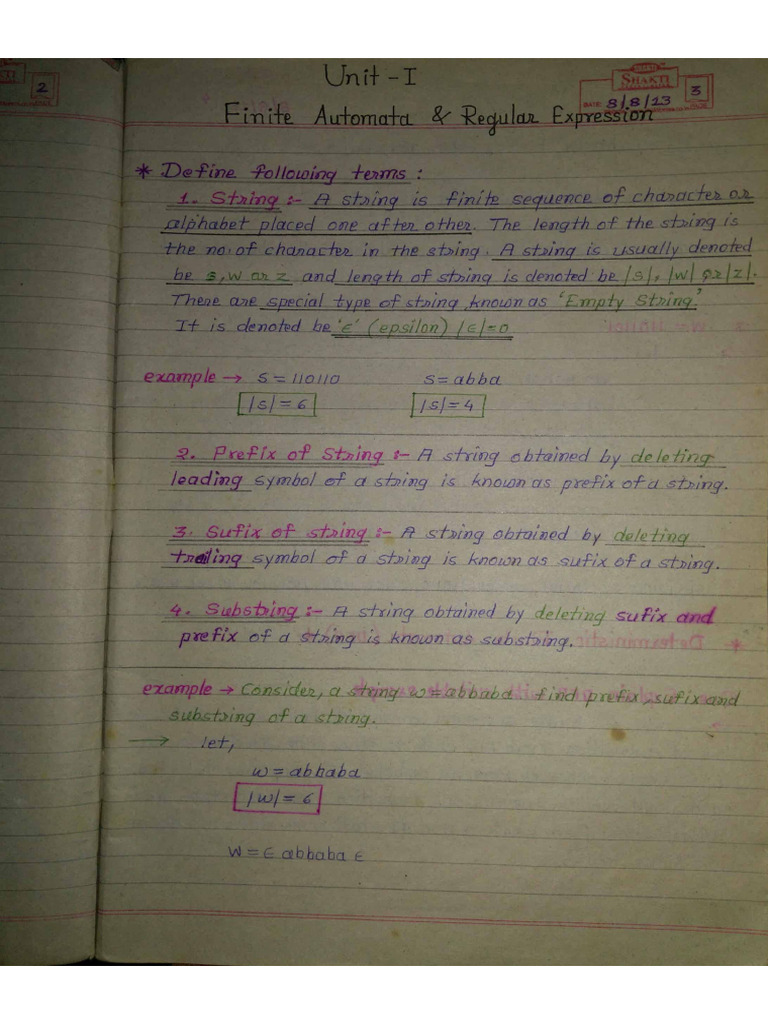 2
Unit - I
SHAKTI
3
DATE: 8/8/13
Finite Automata & Regular Expression
* Define following terms :
1. String :- A string is finite sequence of character or
alphabet placed one after other. The length of the string is
the no. of character in the string. A string is usually denoted
be s, w or z and length of string is denoted be |s|, |w| or |z|.
There are special type of string known as 'Empty String'
It is denoted be 'ϵ' (epsilon) |ϵ|=0
example → S = 110110 S = abba
|S| = 6 |S| = 4
2. Prefix of String :- A string obtained by deleting
leading symbol of a string is known as prefix of a string.
3. Sufix of string :- A string obtained by deleting
trailing symbol of a string is known as sufix of a string.
4. Substring :- A string obtained by deleting sufix and
prefix of a string is known as substring.
example → Consider, a string w = abbaba find prefix, sufix and
substring of a string.
→ let,
w = abbaba
|w| = 6
W = ϵ abbaba ϵ